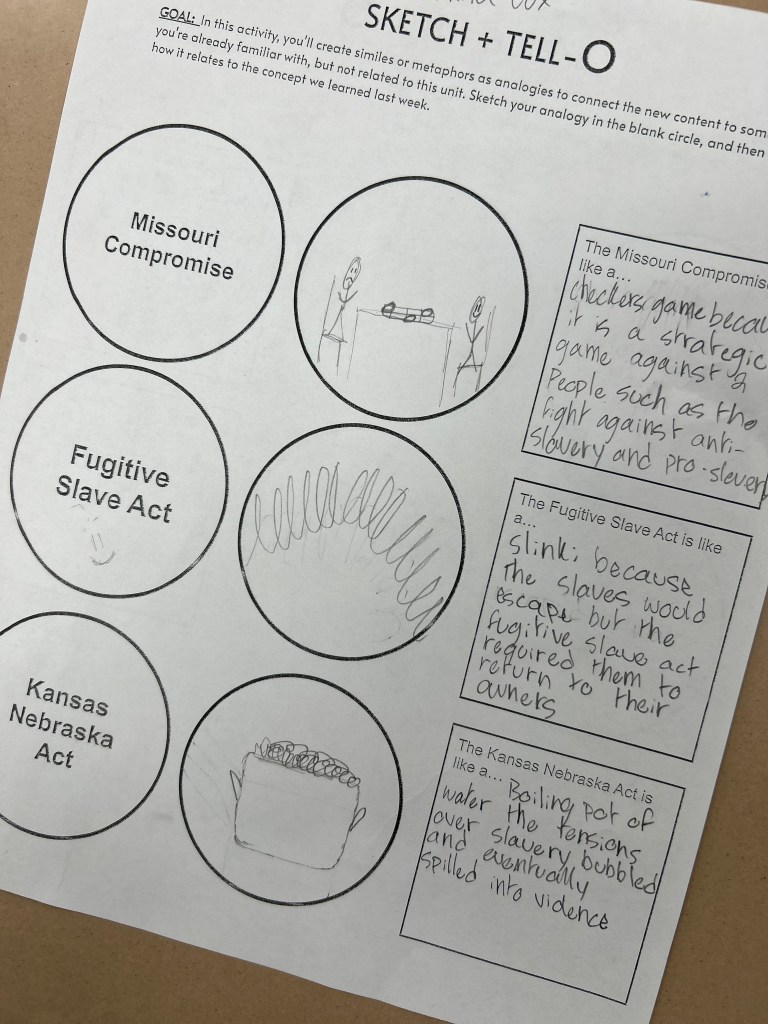 SKETCH + TELL-O
GOAL: In this activity, you'll create similes or metaphors as analogies to connect the new content to som
you're already familiar with, but not related to this unit. Sketch your analogy in the blank circle, and then
how it relates to the concept we learned last week.
Missouri
Compromise
The Missouri Compromis
like a...
checkers game becau
it is a strategic
game against 2
People such as the
fight against anti-
slavery and pro-slavery
Fugitive
Slave Act
The Fugitive Slave Act is like
a...
slinki because
the slaves would
escape but the
fugitive slave act
required them to
return to their
owners
Kansas
Nebraska
Act
The Kansas Nebraska Act is
like a... Boiling pot of
water the tensions
over slavery bubbled
and eventually
spilled into vidence